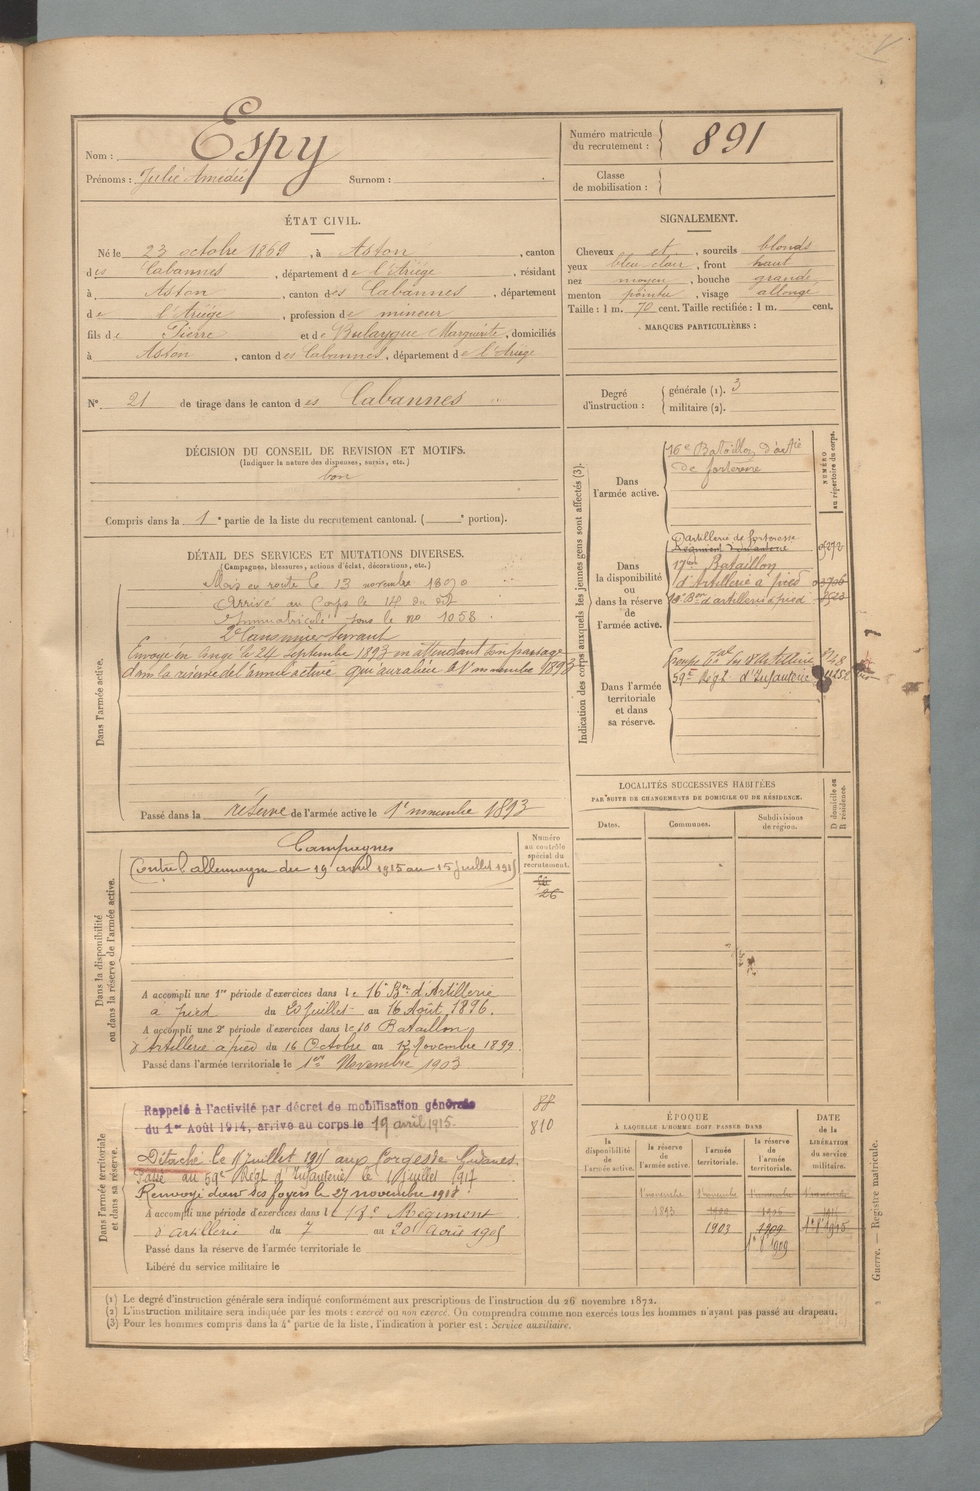 Nom : Espy
Prénoms : Julié Amédée Surnom :
Numéro matricule du recrutement : 891
Classe de mobilisation :
ÉTAT CIVIL.
Né le 23 octobre 1869, à Aston, canton
des Cabannes, département de l'Ariège, résidant
à Aston, canton des Cabannes, département
de l'Ariège, profession de mineur
fils de Pierre et de Bulaygue Marguerite, domiciliés
à Aston, canton des Cabannes, département de l'Ariège
SIGNALEMENT.
Cheveux et, sourcils blonds
yeux bleu clair, front haut
nez moyen, bouche grande
menton pointu, visage allongé
Taille : 1 m. 70 cent. Taille rectifiée : 1 m. cent.
MARQUES PARTICULIÈRES :
N° 21 de tirage dans le canton des Cabannes
Degré d'instruction : générale (1). 3
militaire (2).
DÉCISION DU CONSEIL DE REVISION ET MOTIFS.
(Indiquer la nature des dispenses, sursis, etc.)
bon
Compris dans la 1e partie de la liste du recrutement cantonal. ( e portion).
DÉTAIL DES SERVICES ET MUTATIONS DIVERSES.
(Campagnes, blessures, actions d'éclat, décorations, etc.)
Dans l'armée active.
Mis en route le 13 novembre 1890
Arrivé au Corps le 14 du dit
Immatriculé sous le no 1058
2e Canonnier Servant
Envoyé en Congé le 24 Septembre 1893 en attendant son passage
dans la réserve de l'armée active qui aura lieu le 1er novembre 1893
Passé dans la réserve de l'armée active le 1er novembre 1893
Indication des corps auxquels les jeunes gens sont affectés (3).
NUMÉRO au répertoire du corps.
Dans l'armée active.
16e Bataillon d'artie
de forteresse
Dans la disponibilité ou dans la réserve de l'armée active.
D'artillerie de forteresse
Régiment d'infanterie
17eme Bataillon
d'Artillerie à pied
10e Bon d'artillerie à pied
Dans l'armée territoriale et dans sa réserve.
59e Régt d'Infanterie
LOCALITÉS SUCCESSIVES HABITÉES
PAR SUITE DE CHANGEMENTS DE DOMICILE OU DE RÉSIDENCE.
Dates. Communes. Subdivisions de région. D domicile ou R résidence.
Dans la disponibilité ou dans la réserve de l'armée active.
Numéro au contrôle spécial du recrutement.
26
Campagnes
Contre l'allemagne du 19 avril 1915 au 15 juillet 1915
A accompli une 1re période d'exercices dans le 16e Bon d'Artillerie
à pied du 20 Juillet au 16 Août 1896.
A accompli une 2e période d'exercices dans le 10 Bataillon
d'Artillerie à pied du 16 Octobre au 12 Novembre 1899
Passé dans l'armée territoriale le 1er Novembre 1903
Dans l'armée territoriale et dans sa réserve.
88
810
Rappelé à l'activité par décret de mobilisation générale
du 1er Août 1914, arrivé au corps le 19 avril 1915.
Détaché le juillet 1915 aux forges de Gudanes.
Passé au 59e Régt d'Infanterie le 1 Juillet 1917
Renvoyé dans ses foyers le 27 novembre 1918
A accompli une période d'exercices dans le 18e Régiment
d'artillerie du 7 au 20 Août 1905
Passé dans la réserve de l'armée territoriale le
Libéré du service militaire le
ÉPOQUE
À LAQUELLE L'HOMME DOIT PASSER DANS
la disponibilité de l'armée active. la réserve de l'armée active. l'armée territoriale. la réserve de l'armée territoriale.
DATE de la LIBÉRATION du service militaire.
1 novembre 1 novembre 1 novembre 1 novembre
1893
1903 1909 1er 8bre 1915
1er 8bre 1909
Guerre. — Registre matricule.
(1) Le degré d'instruction générale sera indiqué conformément aux prescriptions de l'instruction du 26 novembre 1872.
(2) L'instruction militaire sera indiquée par les mots : exercé ou non exercé. On comprendra comme non exercés tous les hommes n'ayant pas passé au drapeau.
(3) Pour les hommes compris dans la 4e partie de la liste, l'indication à porter est : Service auxiliaire.